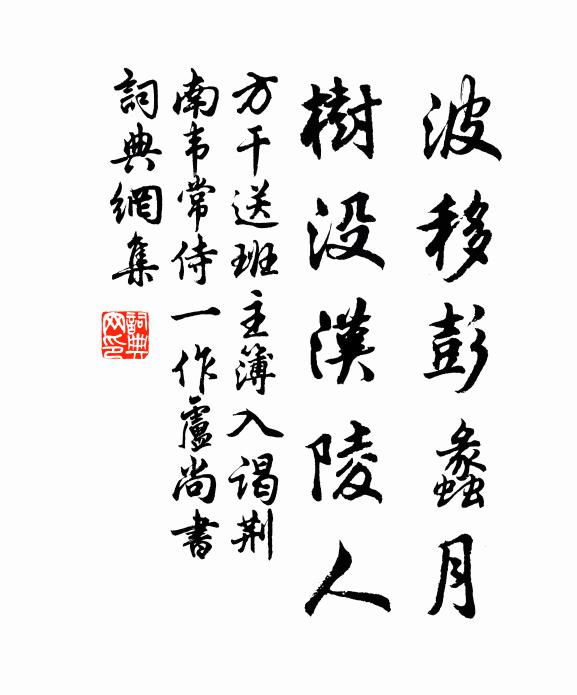 波移彭蠡月
樹没漢陵人
方干送班主簿入谒荆
南韦常侍一作盧尚書
詞典網集
詞典
网印